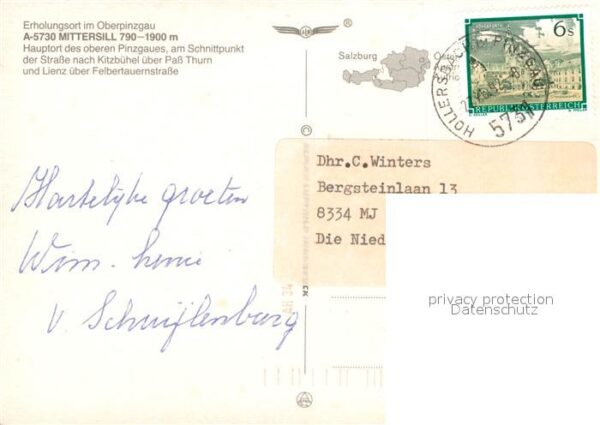 Erholungsort im Oberpinzgau
A-5730 MITTERSILL 790–1900 m
Hauptort des oberen Pinzgaues, am Schnittpunkt
der Straße nach Kitzbühel über Paß Thurn
und Lienz über Felbertauernstraße
Salzburg
6s
REPUBLIK ÖSTERREICH
HOLLERSBACH IM PINZGAU
573
Dhr.C.Winters
Bergsteinlaan 13
8334 MJ
Die Nied
Hartelijke groeten
Wim. henie
v. Schuijlenburg
privacy protection
Datenschutz